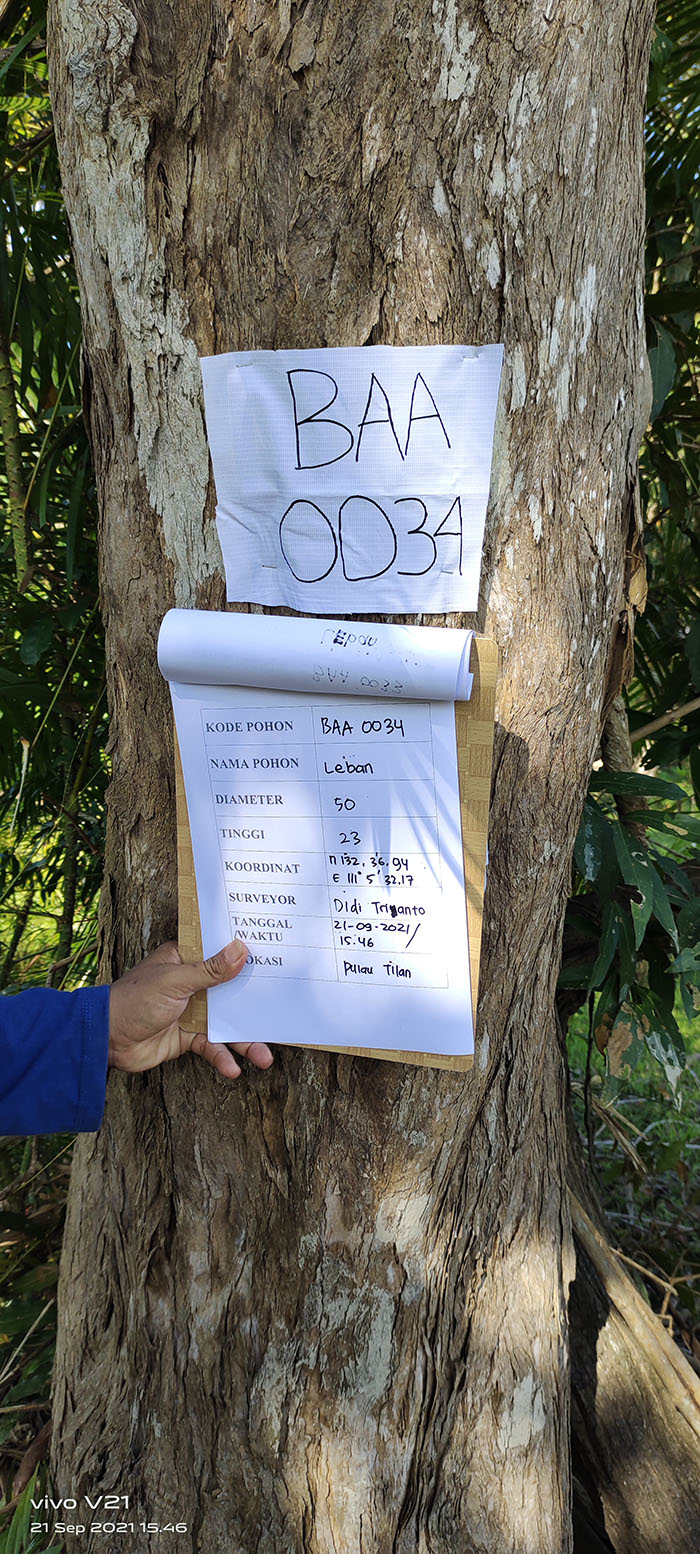 BAA
0034
Lepau
BAA 0033
KODE POHON BAA 0034
NAMA POHON Leban
DIAMETER 50
TINGGI 23
KOORDINAT n 1°32, 36.94
E 111° 5' 32.17
SURVEYOR Didi Triyanto
TANGGAL 21-09-2021/
/WAKTU 15:46
OKASI Pulau Tilan
vivo V21
21 Sep 2021 15.46